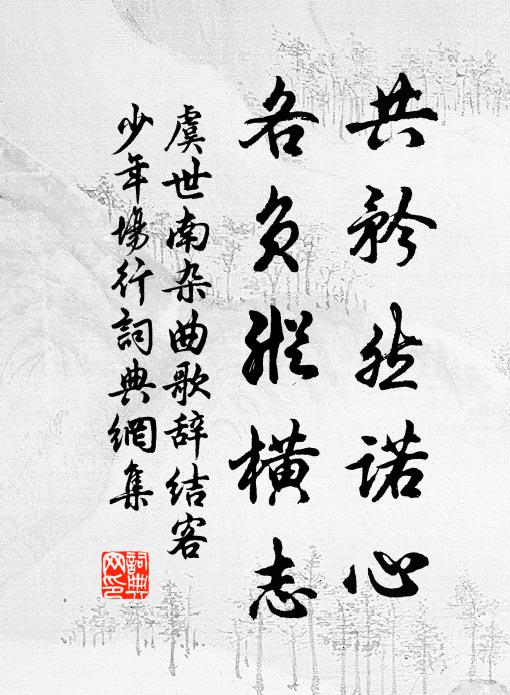 共矜然诺心
各负纵横志
虞世南杂曲歌辞结客
少年場行詞典網集
詞典网印